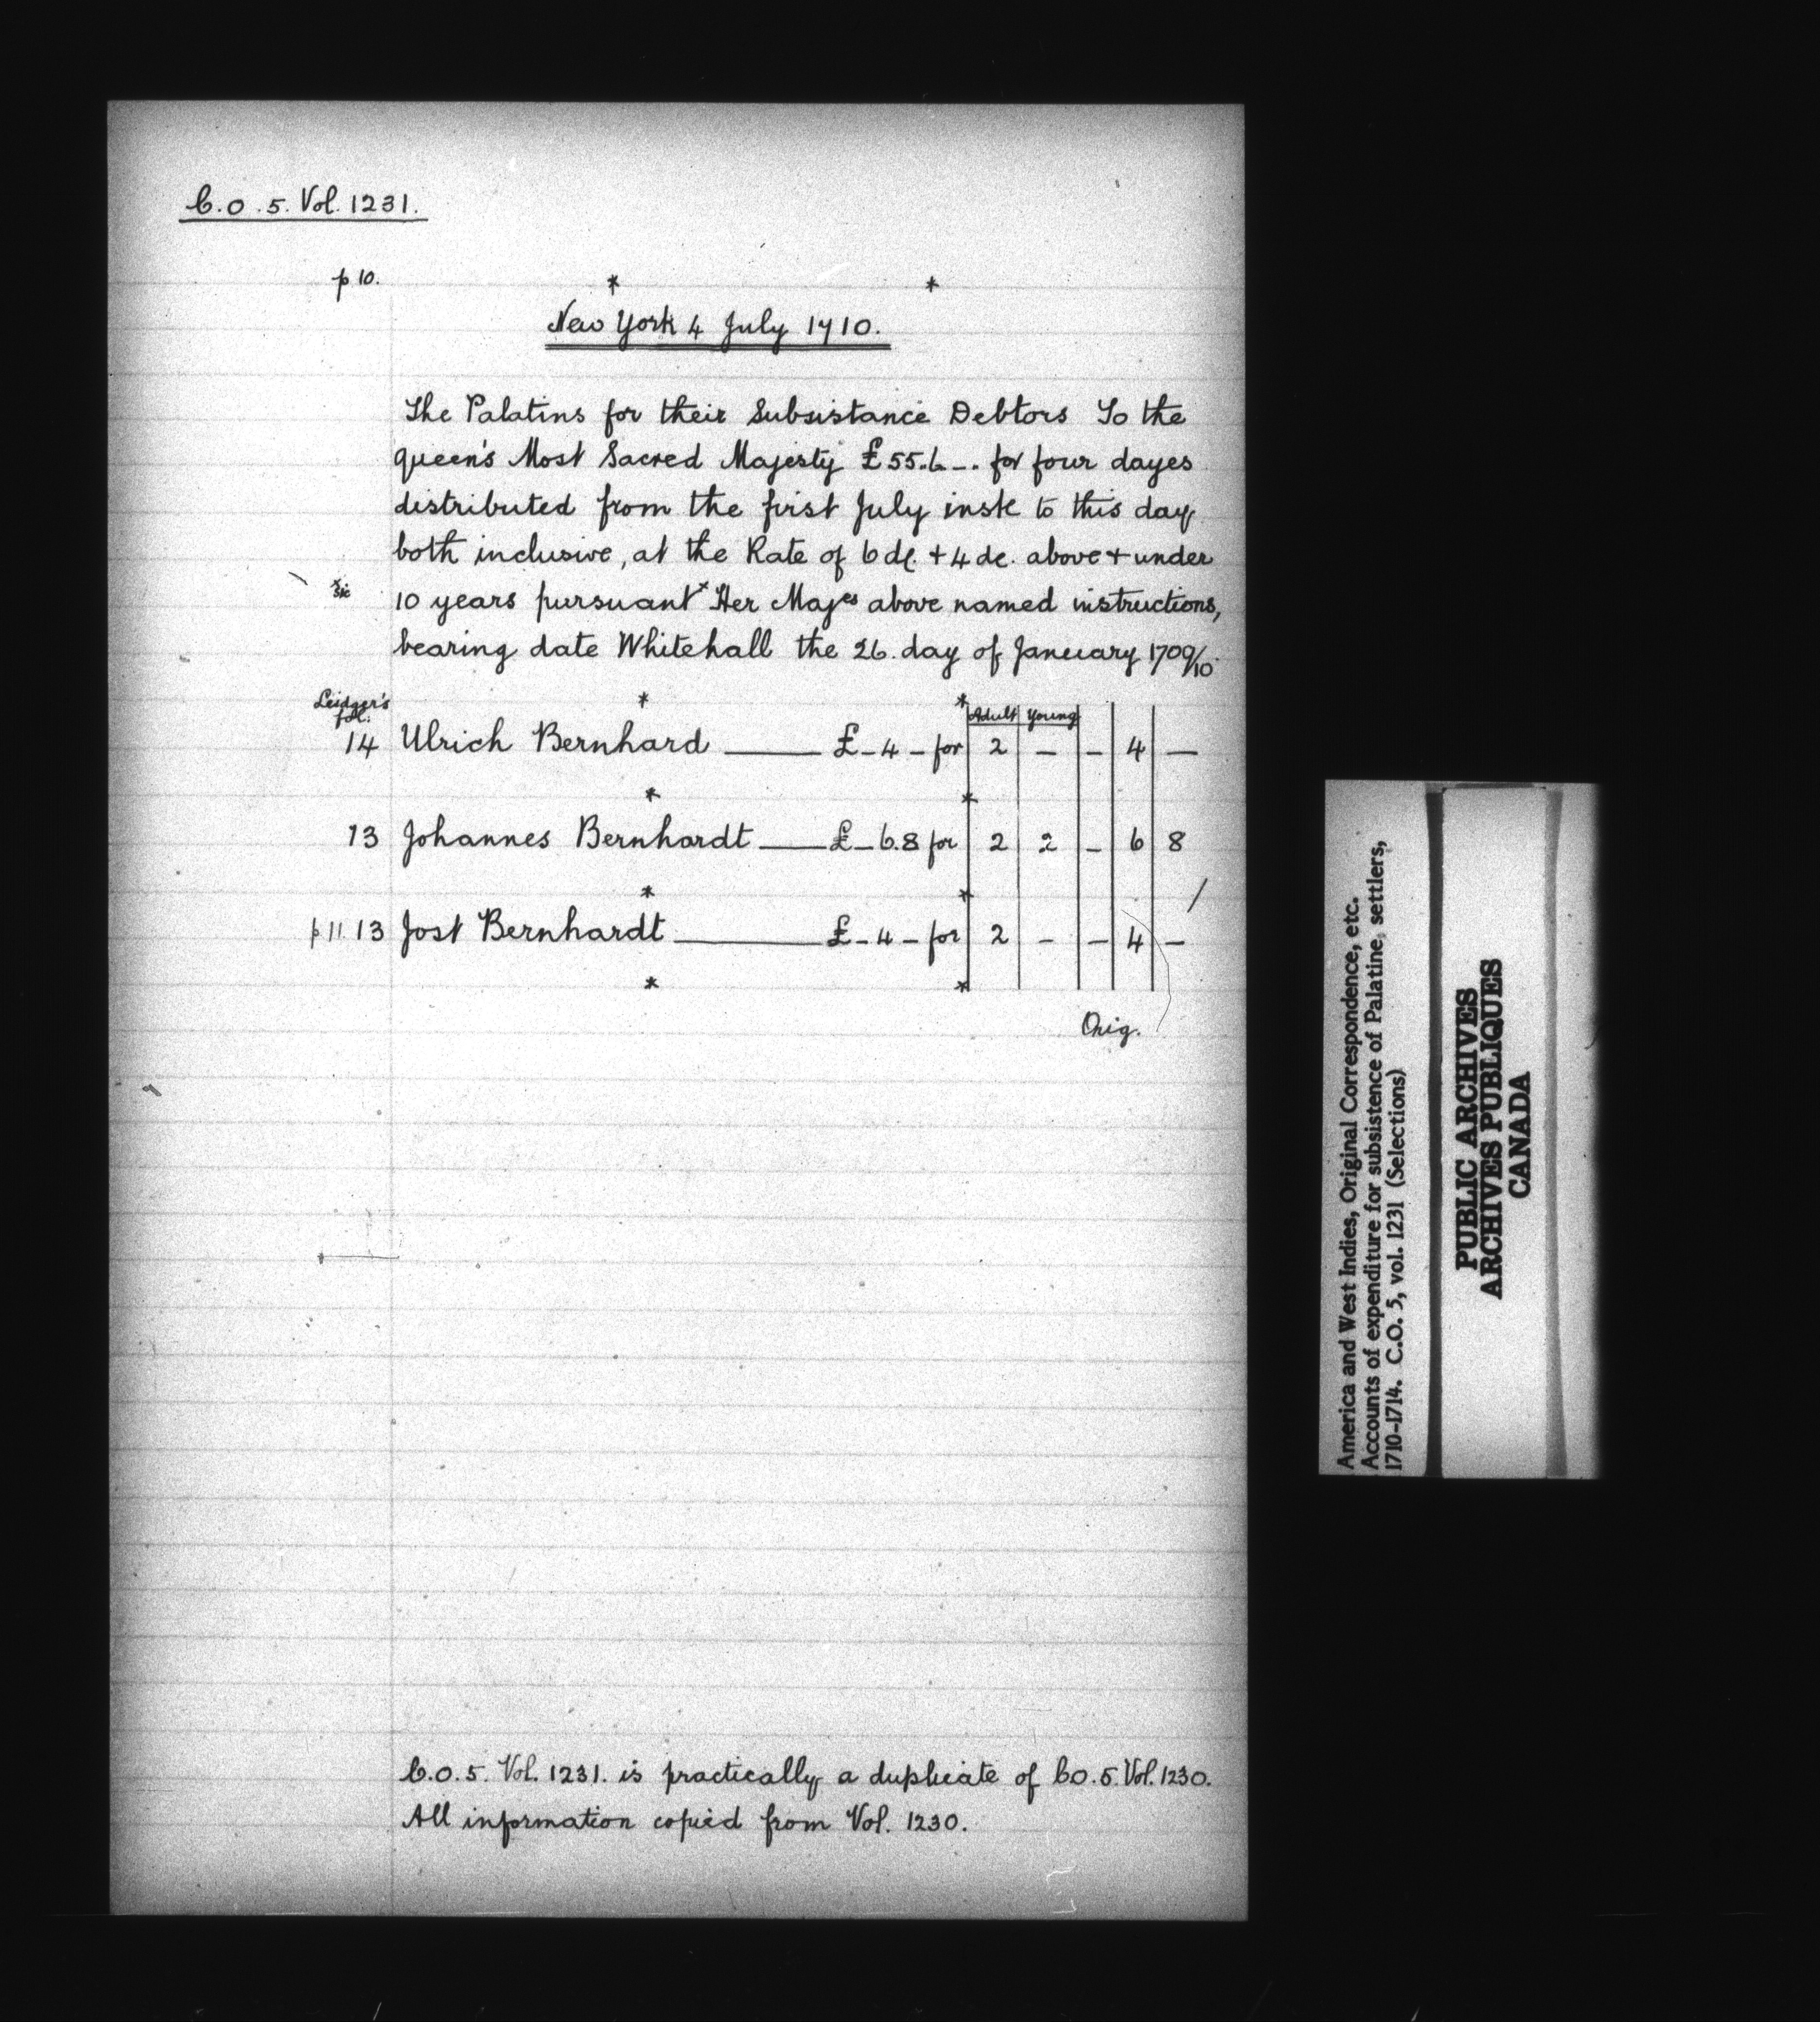 C.O.5. Vol. 1231.
p 10.
* *
New York 4 July 1710.
The Palatins for their Subsistance Debtors To the
queen's Most Sacred Majesty £55.6_. for four dayes
distributed from the first July inst to this day
both inclusive, at the Rate of 6 d. + 4 d. above + under
x sic 10 years pursuant x Her Majes above named instructions,
bearing date Whitehall the 26. day of January 1709/10.
Leidger's fol. * * Adult Young
14 Ulrich Bernhard ——— £_4_ for 2 — — 4 —
* *
13 Johannes Bernhardt ——— £_6.8 for 2 2 — 6 8
* *
p 11. 13 Jost Bernhardt ——— £_4_ for 2 — — 4 —
* *
Orig.
C.O.5. Vol. 1231. is practically a duplicate of CO.5. Vol. 1230.
All information copied from Vol. 1230.
America and West Indies, Original Correspondence, etc.
Accounts of expenditure for subsistence of Palatine, settlers,
1710-1714. C.O. 5, vol. 1231 (Selections)
PUBLIC ARCHIVES
ARCHIVES PUBLIQUES
CANADA